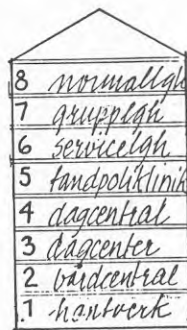 8 normallgh
7 grupplgh
6 servicelgh
5 tandpoliklinik
4 dagcentral
3 dagcenter
2 vårdcentral
1 hantverk